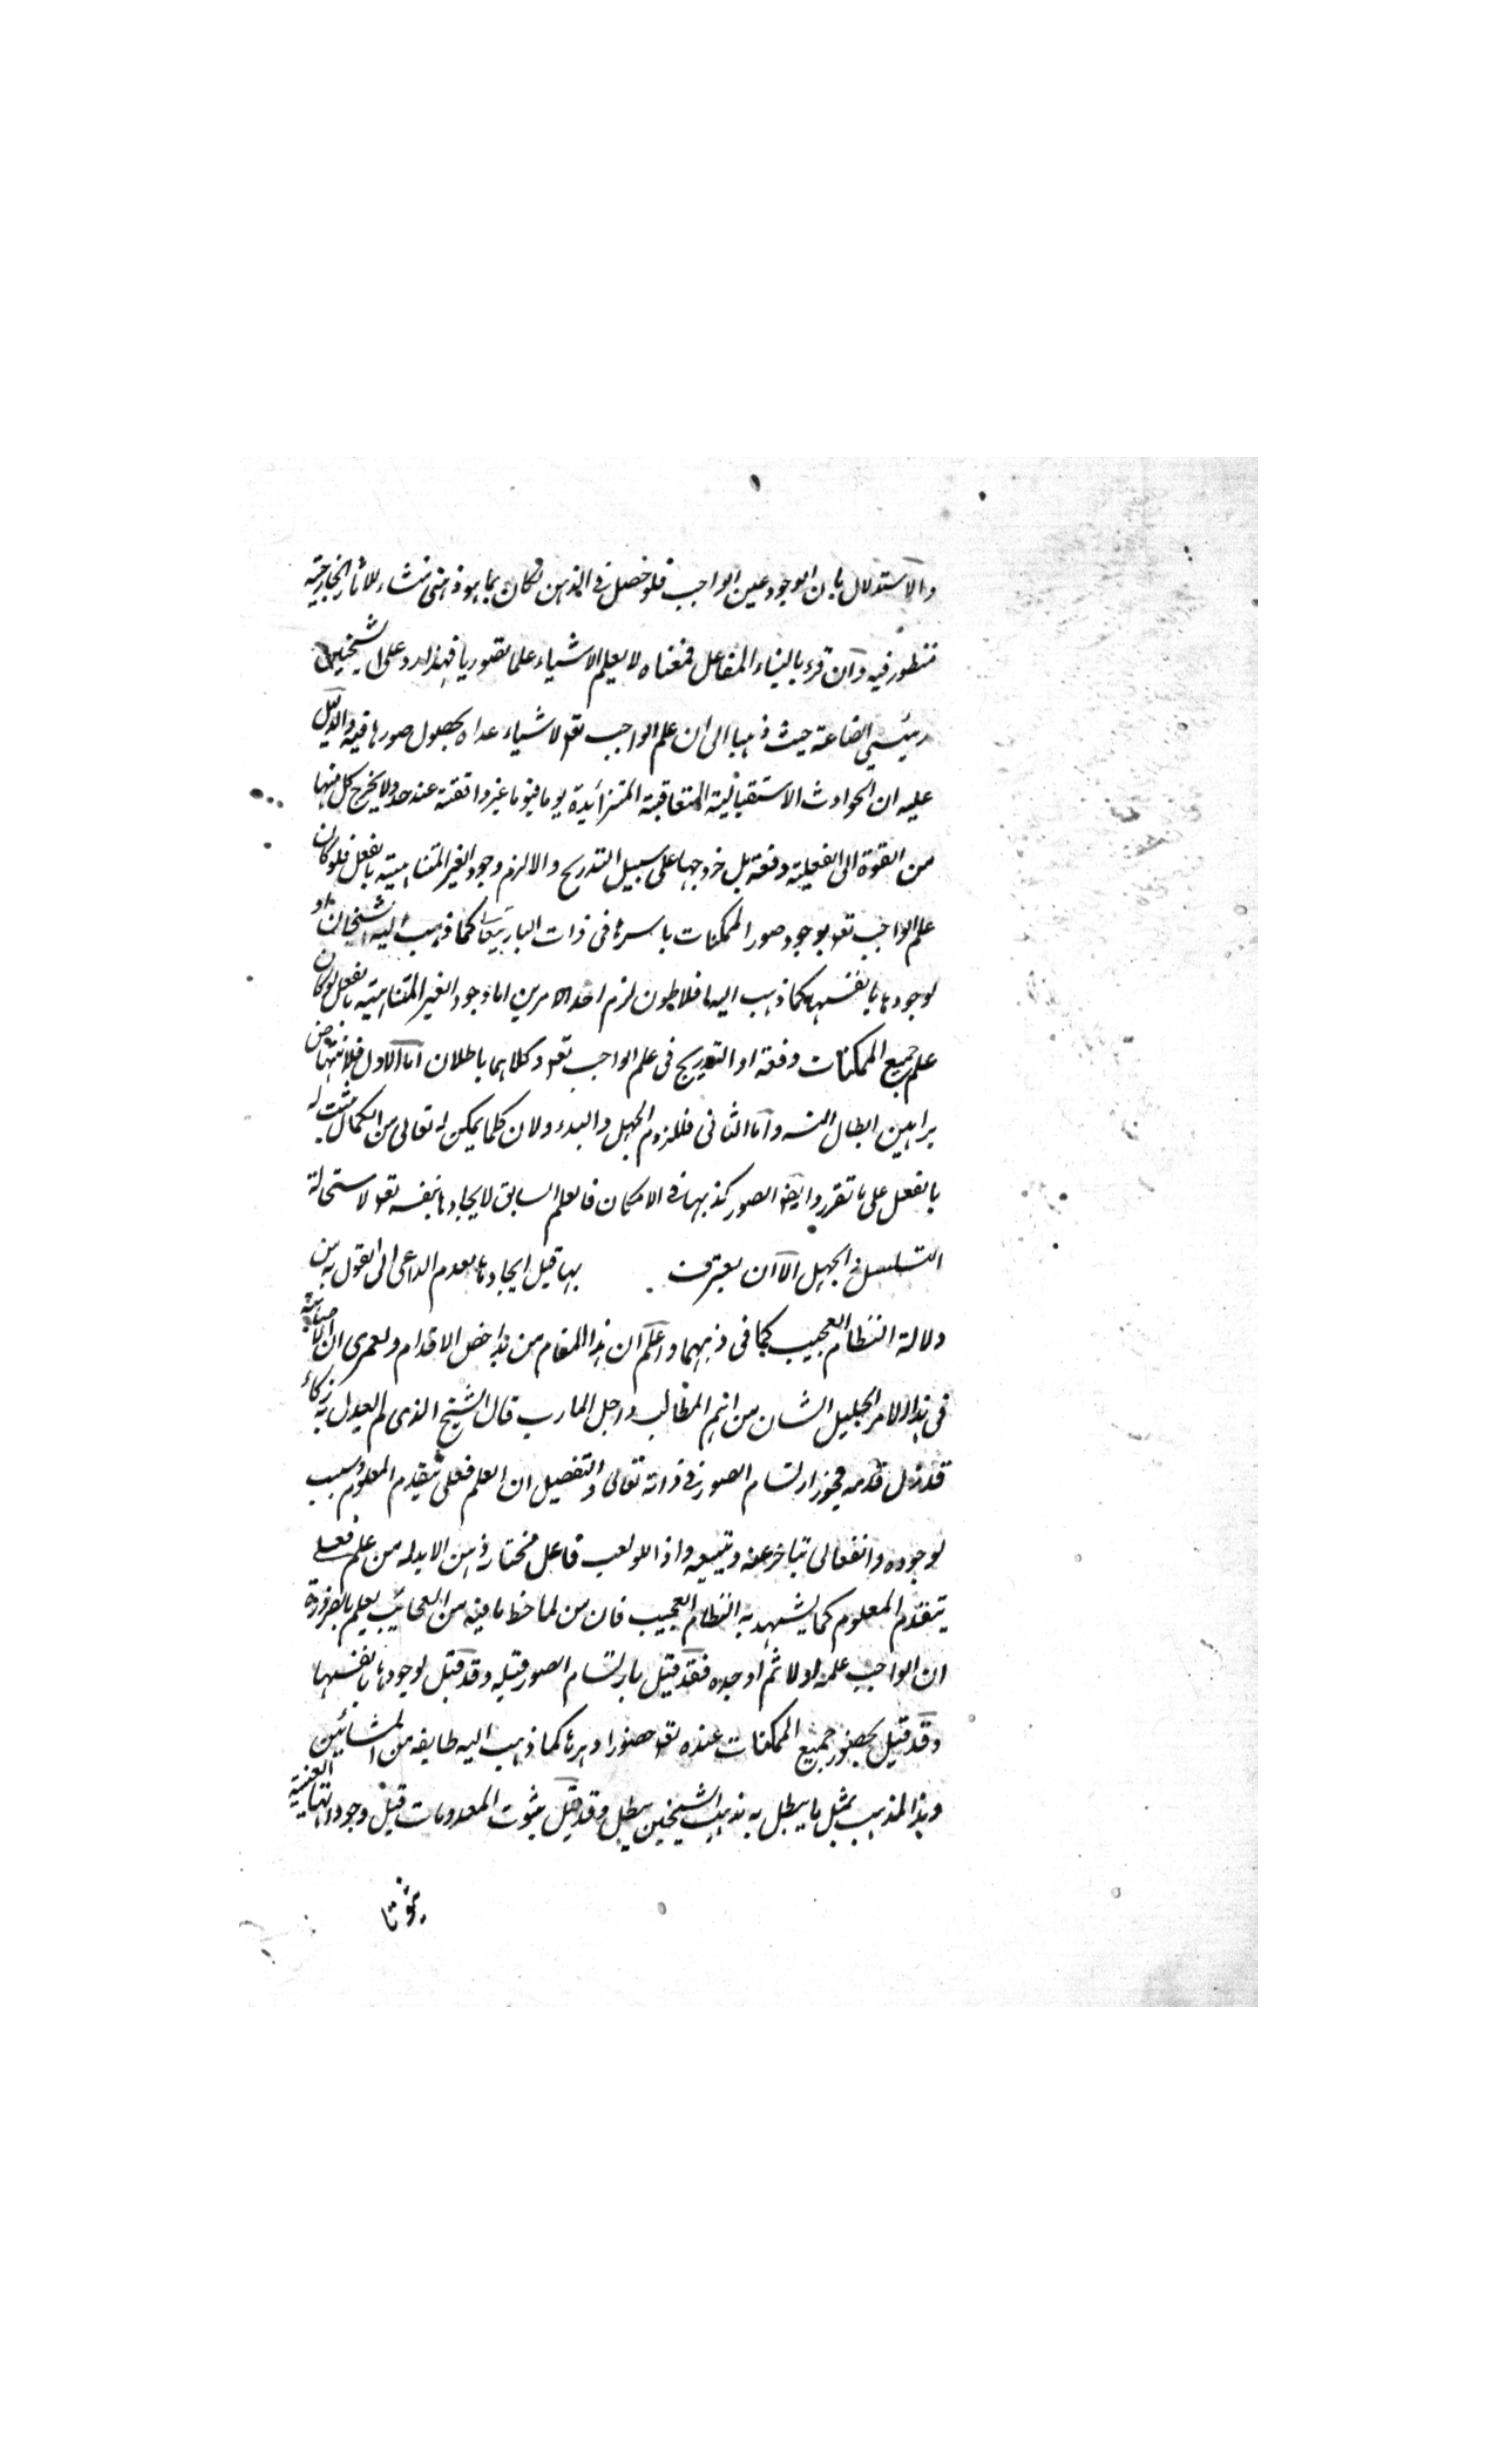 والاستدلال بان الوجود عين الواجب فلو حصل فى الذهن لكان بما هو ذهنى منشاء للاثار الخارجية
منظور فيه وان قرء بالبناء للفاعل فمعناه لا يعلم الاشياء علما تصوريا فهذا رد على الشيخين
رئيسى الصناعة حيث ذهبا الى ان علم الواجب تعو لاشياء عداه بحصول صورها فيه والدليل
عليه ان الحوادث الاستقبالية المتعاقبة المتزائدة يوما فيوما غير واقفة عند حد ولا يخرج كل منها
من القوة الى الفعلية دفعة بل خروجها على سبيل التدريج والا لزم وجود الغير المتناهية بالفعل فلو كان
علم الواجب تعو بوجود صور الممكنات باسرها فى ذات البارى تعالى كما ذهب اليه الشيخان او
لوجودها بانفسها كما ذهب اليه افلاطون لزم احد الامرين اما وجود الغير المتناهية بالفعل لو كان
علم جميع الممكنات دفعة او التدريج فى علم الواجب تعو وكلاهما باطلان اما الاول فلانتهاض
براهين ابطال التسـ واما الثانى فللزوم الجهل والبدء ولان كلما يمكن له تعالى من الكمال مثبت له
بالفعل على ما تقرر وايضا الصور كذبها فى الامكان فالعلم السابق لايجادها بنفسه تعو لاستحالة
التسلسل الجهل الا ان يعترف بها قبل ايجادها لعدم الداعى الى القول به من
دلالة النظام العجيب كما فى ذيهما واعلم ان هذا المقام من مداحض الاقدام ولعمرى ان الاصابة
فى هذا الامر الجليل الشان من اهم المطالب واجل المارب قال الشيخ الذى لم يعدل به ذكاء
قد زل قدمه فجوز ارتسام الصور فى ذاته تعالى والتفصيل ان العلم فعلى يتقدم المعلوم وسبب
لوجوده وانفعالى يتاخر عنه ويتبعه واذا الواجب فاعل مختار ذهن لابد له من علم فعلى
يتقدم المعلوم كما يشهد به النظام العجيب فان من لاحظ ما فيه من العجائب يعلم بالضرورة
ان الواجب علمه اولا ثم اوجده فقد قيل بارتسام الصور قبله وقد قيل لوجودها بانفسها
وقد قيل بحضور جميع الممكنات عنده تعو حضورا دهريا كما ذهب اليه طايفه من المشائين
وهذا المذهب بمثل ما يبطل به مذهب الشيخين يبطل وقد قيل بثبوت المعدومات قبل وجوداتها العينية
ثبوتا